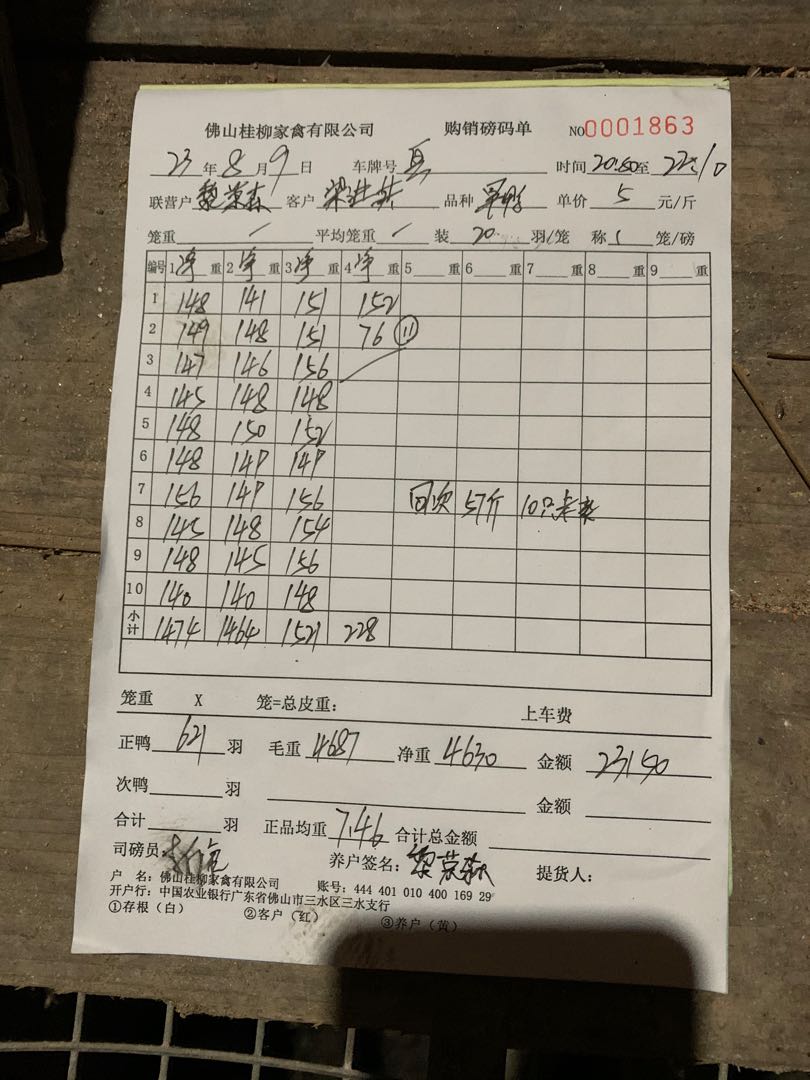 佛山桂柳家禽有限公司 购销磅码单 NO0001863
23年8月9日 车牌号 时间20:50至22:10
联营户黎荣森 客户 品种 单价5元/斤
笼重/ 平均笼重/ 装20羽/笼 称1笼/磅
编号 1净重 2净重 3净重 4净重 5重 6重 7重 8重 9重
1 148 141 151 152
2 149 148 151 76 ⑪
3 147 146 156
4 145 148 148
5 148 150 152
6 148 147 147
7 156 147 156 回次 57斤 10只
8 145 148 154
9 148 145 156
10 140 140 148
小计 1474 1464 1521 228
笼重 X 笼=总皮重: 上车费
正鸭621羽 毛重4687 净重4630 金额23150
次鸭羽 金额
合计羽 正品均重7.46 合计总金额
司磅员 养户签名:黎荣森 提货人:
户 名:佛山桂柳家禽有限公司 账号:444 401 010 400 169 29
开户行:中国农业银行广东省佛山市三水区三水支行
①存根(白) ②客户(红) ③养户(黄)